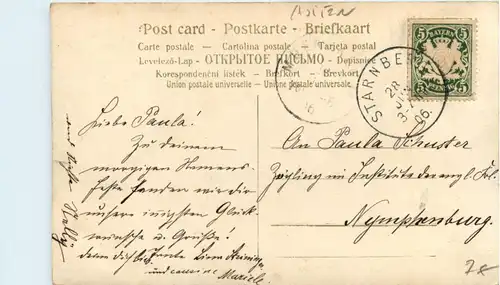 Post card - Postkarte - Briefkaart
Carte postale – Cartolina postale – Tarjeta postal
Levelező-Lap – ОТКРЫТОЕ ПИСЬМО – Dopisnice
Korespondenční lístek – Brefkort – Brevkort
Union postale universelle – Unione postale universale.
5 BAYERN 5
5 5
STARNBERG
28
06.
6
Liebe Paula!
Zu Deinem
morgigen Namens-
feste senden wir dir
unsere innigsten Glück-
wünsche u. Grüße!
Tante Lina
und cousine
Mariele.
An Paula Schuster
Zögling im Institute der engl. Frl.
Nymphenburg.
78